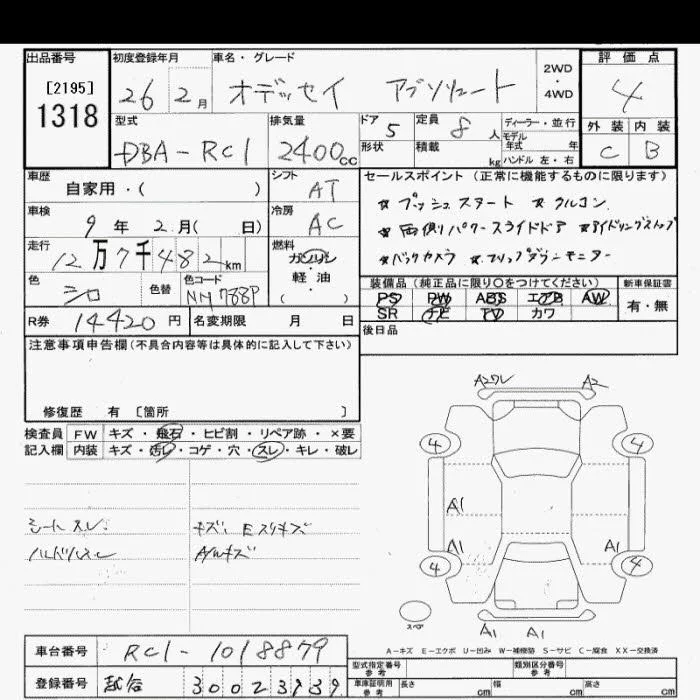 出品番号
[2195]
1318
初度登録年月
26 2月
車名・グレード
オデッセイ アブソリュート
2WD
・
4WD
評価点
4
外装 内装
C B
型式
DBA-RC1
排気量
2400cc
ドア 5
形状
定員 8人
積載 kg
ディーラー・並行
モデル
年式 年
ハンドル 左・右
車歴
自家用・( )
シフト
AT
車検
9年 2月( 日)
冷房
AC
走行
12万7千482km
燃料
ガソリン
・
軽・油
( )
色
シロ
色替
色コード
NH788P
R券 14420円
名変期限 月 日
セールスポイント(正常に機能するものに限ります)
☆プッシュスタート ☆クルコン
☆両側パワースライドドア ☆アイドリングストップ
☆バックカメラ ☆フリップダウンモニター
装備品(純正品に限り〇をつけてください)
新車保証書
PS PW ABS エアB AW
SR ナビ TV カワ
有・無
後日品
注意事項申告欄(不具合内容等は具体的に記入して下さい)
修復歴 有 [箇所 ]
検査員
記入欄
FW キズ・飛石・ヒビ割・リペア跡・×要
内装 キズ・汚レ・コゲ・穴・スレ・キレ・破レ
シートスレ
ハンドルスレ
A2ワレ A2
4 4
A1
A1 A1
4 4
スペア
A1 A1
A-キズ E-エクボ U-凹み W-補修跡 S-サビ C-腐食 XX-交換済
車台番号 RC1-1018879
登録番号
型式指定番号
参考
類別区分番号
参考
車庫証明用
参考
長さ cm
幅 cm
高さ cm